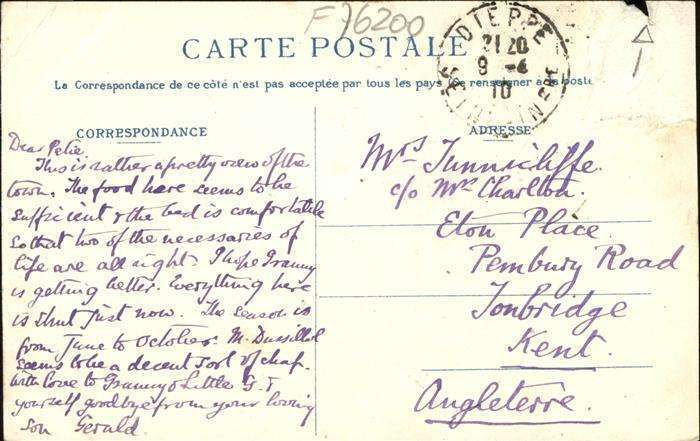 F 76200
CARTE POSTALE
La Correspondance de ce côté n'est pas acceptée par tous les pays (Se renseigner à la poste
DIEPPE
21 20
9 -4
10
SEINE INFRE
CORRESPONDANCE
Dear Petie
This is rather a pretty view of the
town. The food here seems to be
sufficient & the bed is comfortable
so that two of the necessaries of
life are all right. I hope Granny
is getting better. Everything here
is shut just now. The season is
from June to October. M.
seems to be a decent sort of chap.
With love to Granny & Little G. &
yourself goodbye from your loving
son Gerald
ADRESSE
Mrs Tunnicliffe.
c/o Mrs Charlton.
Eton Place.
Pembury Road
Tonbridge
Kent.
Angleterre.